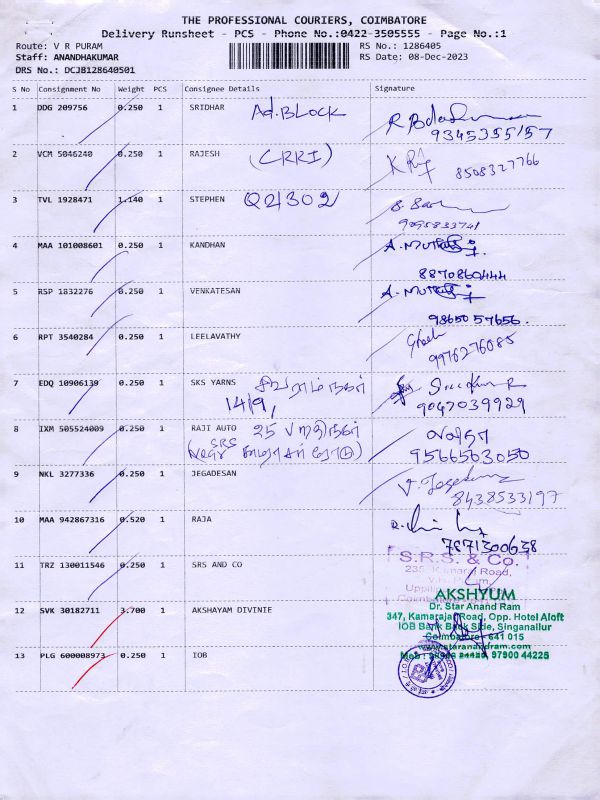 THE PROFESSIONAL COURIERS, COIMBATORE
Delivery Runsheet - PCS - Phone No.:0422-3505555 - Page No.:1
Route: V R PURAM
RS No.: 1286405
Staff: ANANDHAKUMAR
RS Date: 08-Dec-2023
DRS No.: DCJB128640501
S No Consignment No Weight PCS Consignee Details Signature
1 DDG 209756 0.250 1 SRIDHAR Ad.BLOCK
9345355157
2 VCM 5046240 0.250 1 RAJESH (CRRI)
8508327766
3 TVL 1928471 1.140 1 STEPHEN Q2/302
9095833741
4 MAA 101008601 0.250 1 KANDHAN
8870860444
5 RSP 1832276 0.250 1 VENKATESAN
9865057656
6 RPT 3540284 0.250 1 LEELAVATHY
9976276085
7 EDQ 10906139 0.250 1 SKS YARNS சிவராம்நகர்
14/9,
9047039929
8 IXM 505524009 0.250 1 RAJI AUTO 25
(Near SRS
9566563050
9 NKL 3277336 0.250 1 JEGADESAN
8438533197
10 MAA 942867316 0.520 1 RAJA
7871300638
S.R.S. & Co.
11 TRZ 130011546 0.250 1 SRS AND CO
235, Kamaraj Road,
V.R. Puram,
AKSHYUM
12 SVK 30182711 3.700 1 AKSHAYAM DIVINIE
Dr. Star Anand Ram
347, Kamarajar Road, Opp. Hotel Aloft
IOB Bank Back Side, Singanallur
Coimbatore - 641 015
www.staranandram.com
13 PLG 600008973 0.250 1 IOB
97900 44225